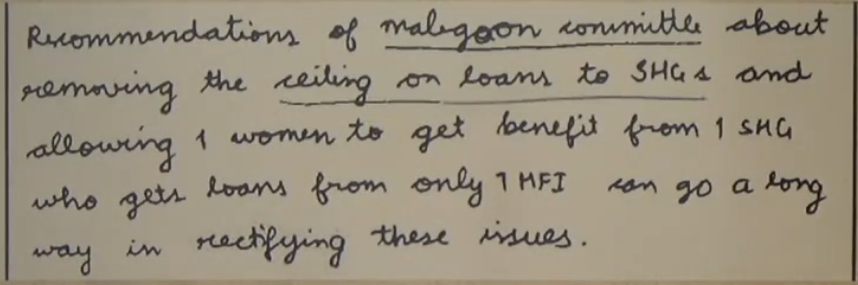 Recommendations of malegoon committee about
removing the ceiling on loans to SHGs and
allowing 1 women to get benefit from 1 SHG
who gets loans from only 1 MFI can go a long
way in rectifying these issues.